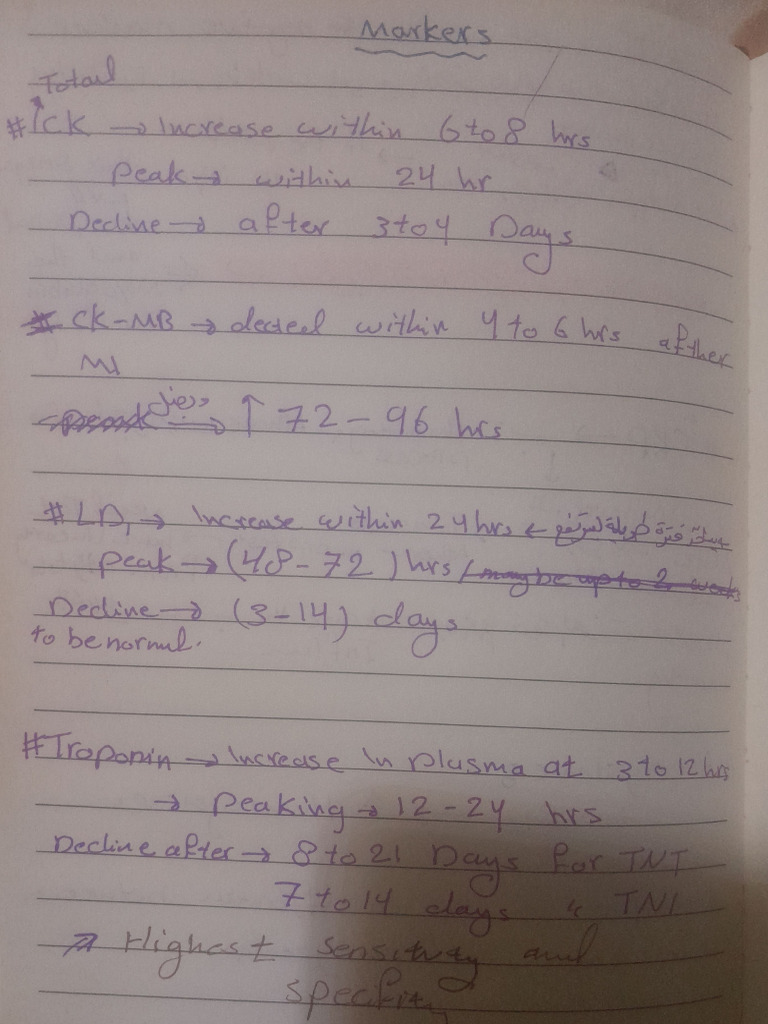 Markers
Total
# CK → Increase within 6 to 8 hrs
Peak → within 24 hr
Decline → after 3 to 4 Days
CK-MB → deceted within 4 to 6 hrs afther
MI
↑ 72 - 96 hrs
# LD1 → Increase within 24 hrs ← فترة طويلة
Peak → (48 - 72) hrs / may be up to 2 weeks
Decline → (3 - 14) days
to be normal.
# Troponin → Increase In plasma at 3 to 12 hrs
→ Peaking → 12 - 24 hrs
Decline after → 8 to 21 Days for TNT
7 to 14 days " TNI
Highest sensitvity and